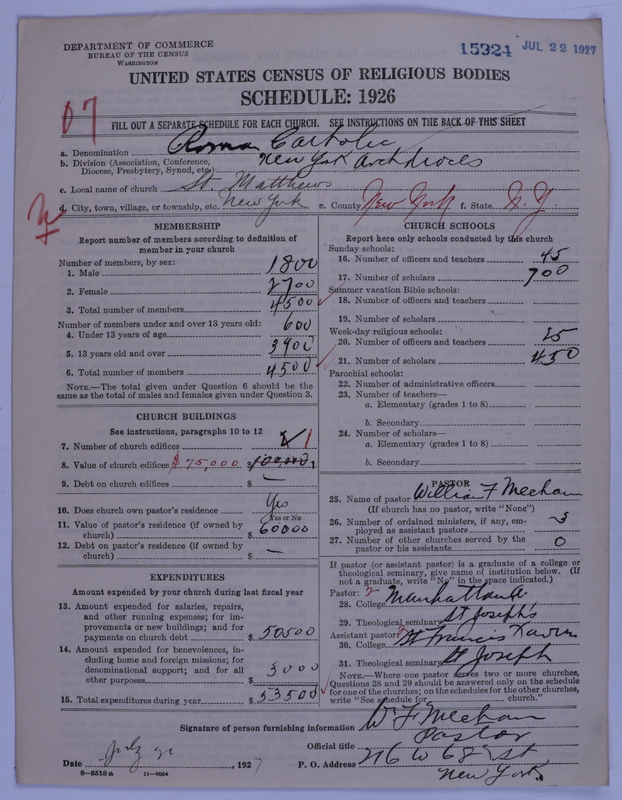 DEPARTMENT OF COMMERCE
BUREAU OF THE CENSUS
WASHINGTON
15924 JUL 22 1927
UNITED STATES CENSUS OF RELIGIOUS BODIES
SCHEDULE: 1926
FILL OUT A SEPARATE SCHEDULE FOR EACH CHURCH. SEE INSTRUCTIONS ON THE BACK OF THIS SHEET
a. Denomination Roman Catholic
b. Division (Association, Conference, Diocese, Presbytery, Synod, etc.) New York
c. Local name of church St. Matthews
d. City, town, village, or township, etc. New York e. County New York f. State N.Y
MEMBERSHIP
Report number of members according to definition of
member in your church
Number of members, by sex:
1. Male 1800
2. Female 2700
3. Total number of members 4500
Number of members under and over 13 years old:
4. Under 13 years of age 600
5. 13 years old and over 3900
6. Total number of members 4500
NOTE.—The total given under Question 6 should be
same as the total of males and females given under Question 3.
CHURCH BUILDINGS
See instructions, paragraphs 10 to 12
7. Number of church edifices 1
8. Value of church edifices $75,000 $100,000
9. Debt on church edifices $ —
10. Does church own pastor's residence Yes
Yes or No
11. Value of pastor's residence (if owned by
church) $ 60000
12. Debt on pastor's residence (if owned by
church) $ —
EXPENDITURES
Amount expended by your church during last fiscal year
13. Amount expended for salaries, repairs,
and other running expenses; for im-
provements or new buildings; and for
payments on church debt $ 50500
14. Amount expended for benevolences, in-
cluding home and foreign missions; for
denominational support; and for all
other purposes $ 3000
15. Total expenditures during year $ 53500
CHURCH SCHOOLS
Report here only schools conducted by this church
Sunday schools:
16. Number of officers and teachers 45
17. Number of scholars 700
Summer vacation Bible schools:
18. Number of officers and teachers
19. Number of scholars
Week-day religious schools:
20. Number of officers and teachers 25
21. Number of scholars 450
Parochial schools:
22. Number of administrative officers
23. Number of teachers—
a. Elementary (grades 1 to 8)
b. Secondary
24. Number of scholars—
a. Elementary (grades 1 to 8)
b. Secondary
PASTOR
25. Name of pastor William F Meehan
(If church has no pastor, write "None")
26. Number of ordained ministers, if any, em-
ployed as assistant pastors 3
27. Number of other churches served by the
pastor or his assistants 0
If pastor (or assistant pastor) is a graduate of a college or
theological seminary, give name of institution below. (If
not a graduate, write "No" in the space indicated.)
Pastor:
28. College Manhattan
29. Theological seminary St Josephs
Assistant pastor:
30. College St Francis Xavier
31. Theological seminary St Joseph
NOTE.—Where one pastor serves two or more churches,
Questions 28 and 29 should be answered only on the schedule
for one of the churches; on the schedules for the other churches,
write "See schedule for church."
Signature of person furnishing information Wm F Meehan
Official title Pastor
Date July 20, 1927 P. O. Address 216 W 68th St
New York
8-5318a 11-9054